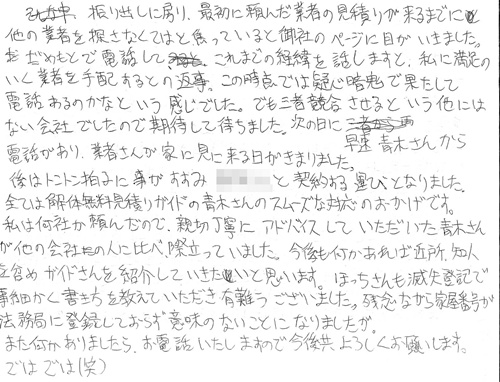 そんな中、振り出しに戻り、最初に頼んだ業者の見積りが来るまでに
他の業者を探さなくてはと焦っていると御社のページに目がいきました。
だめもとで電話して これまでの経緯を話しますと、私に満足の
いく業者を手配するとの返事。この時点では疑心暗鬼で果たして
電話あるのかなという感じでした。でも三者競合させるという他には
ない会社でしたので期待して待ちました。次の日に
早速青木さんから
電話があり、業者さんが家に見に来る日がきまりました。
後はトントン拍子に事がすすみ と契約する運びとなりました。
全ては解体無料見積りガイドの青木さんのスムーズな対応のおかげです。
私は何社か頼んだので、親切丁寧にアドバイスしていただいた青木さん
が他の会社の人に比べ、際立っていました。今後も何かあれば近所、知人
を含めガイドさんを紹介していきたいと思います。ほっちさんも滅失登記で
事細かく書き方を教えていただき有難うございました。残念ながら家屋番号が
法務局に登録しておらず意味のないことになりましたが。
また何かありましたら、お電話いたしますので今後共よろしくお願いします。
ではでは(笑)